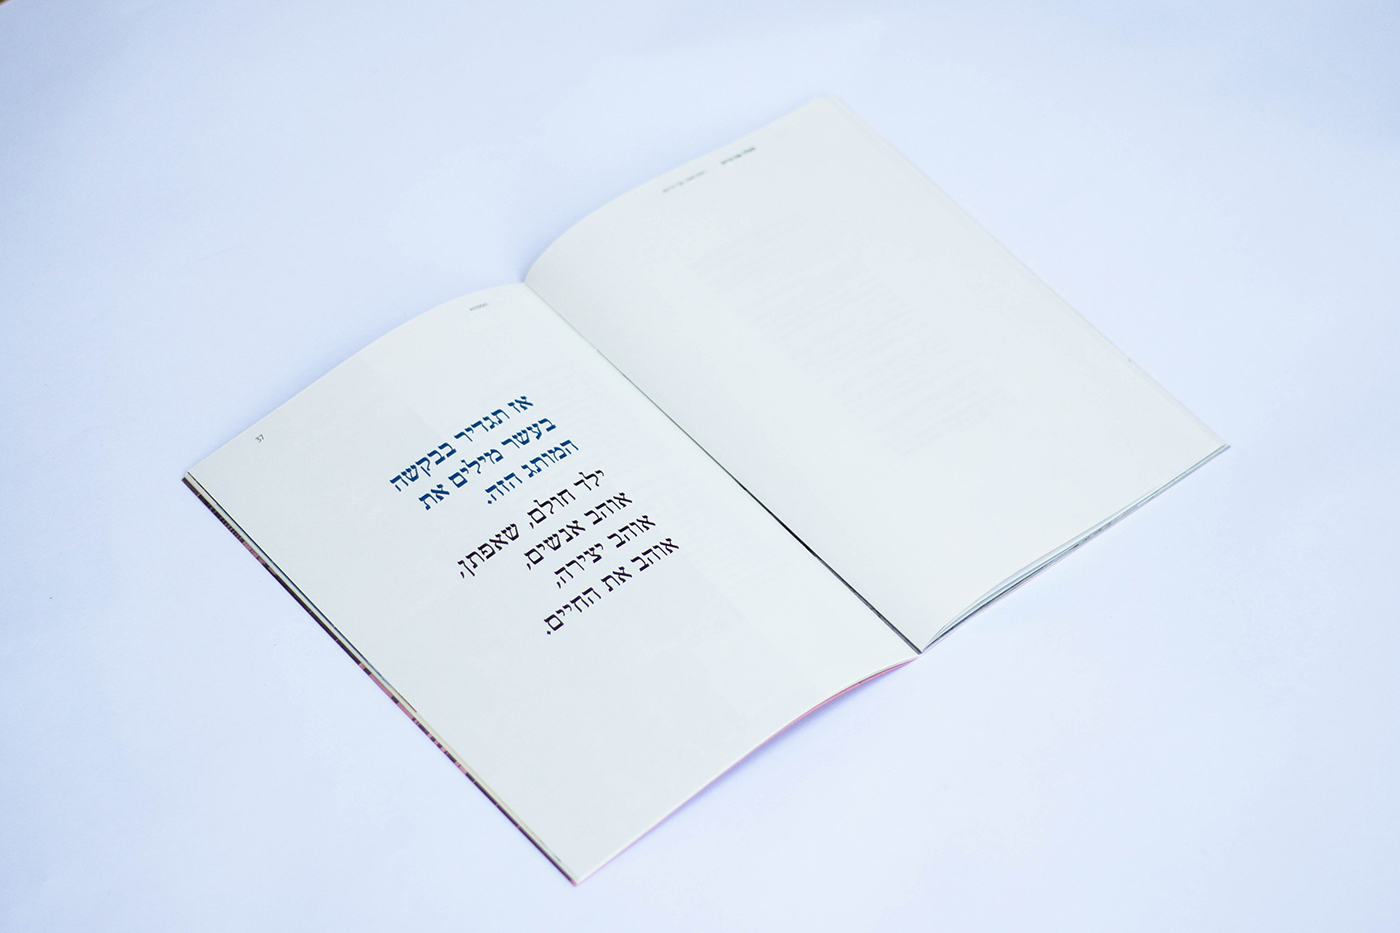 37
אז תגדיר בבקשה
בעשר מילים את
המותג הזה.
ילד חולם, שאפתן,
אוהב אנשים,
אוהב יצירה,
אוהב את החיים.